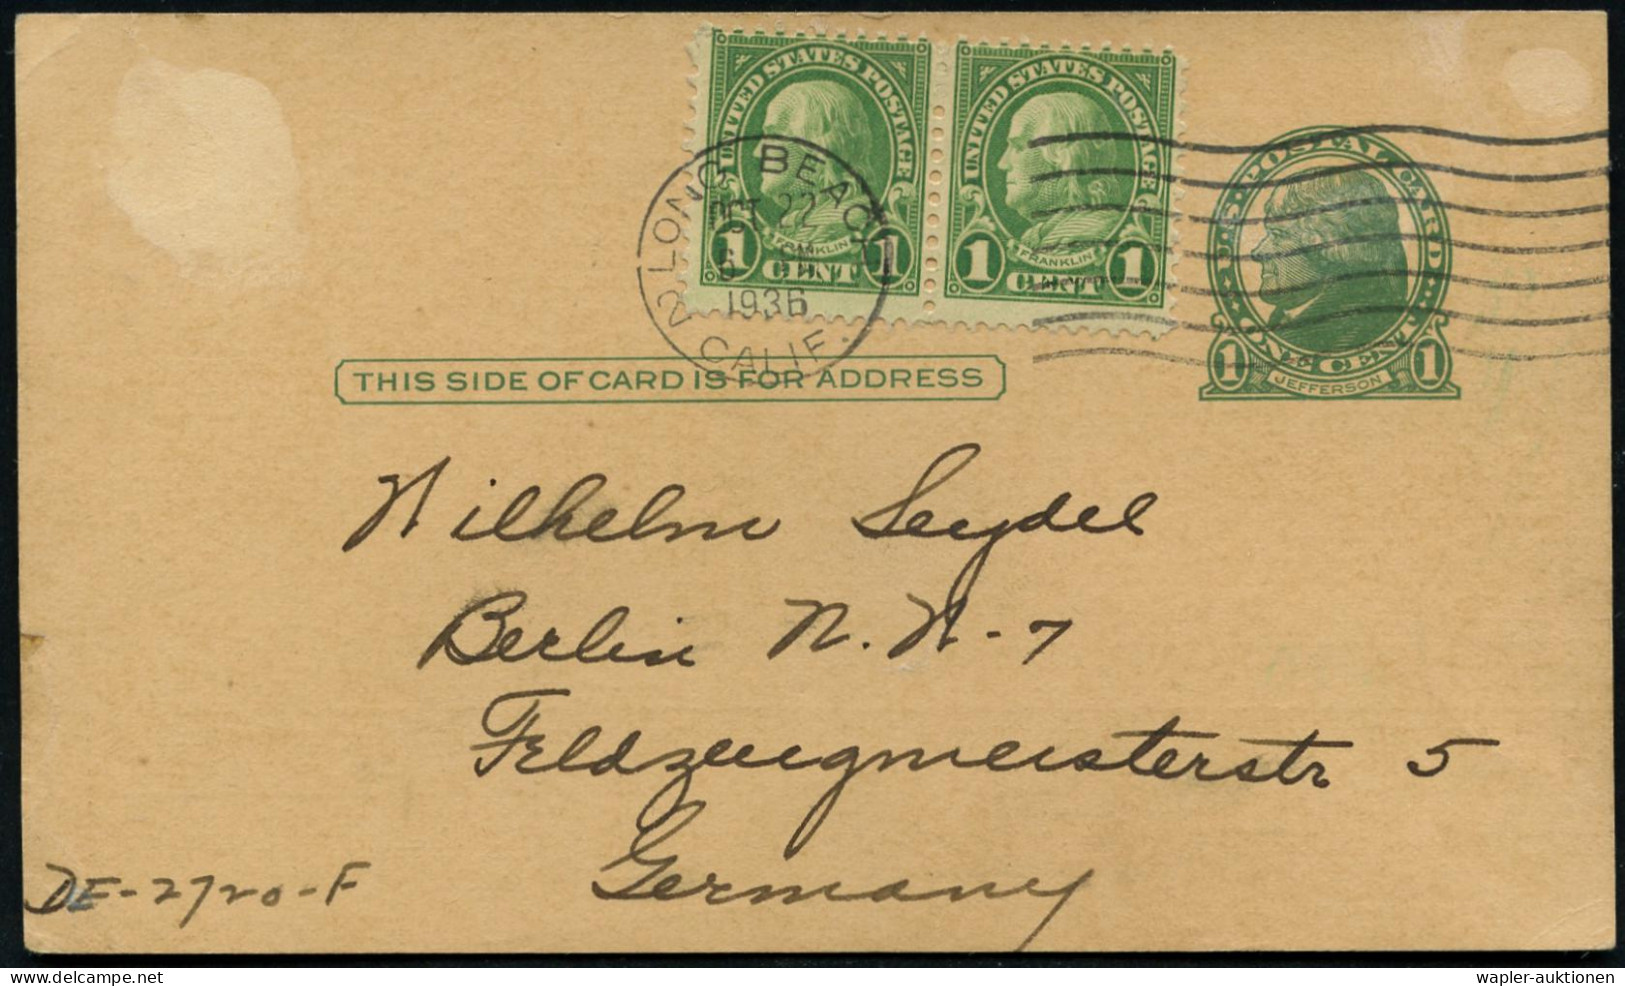 wapler-auktionen
UNITED STATES POSTAGE
FRANKLIN
1 CENT 1
UNITED STATES POSTAGE
FRANKLIN
1 CENT 1
U.S. POSTAL CARD
ONE CENT
1 JEFFERSON 1
LONG BEACH
OCT 22
1936
2 CALIF.
THIS SIDE OF CARD IS FOR ADDRESS
Wilhelm Seydel
Berlin N.W-7
Feldzeugmeisterstr 5
Germany
DE-2720-F
delcampe.net
wapler-auktionen